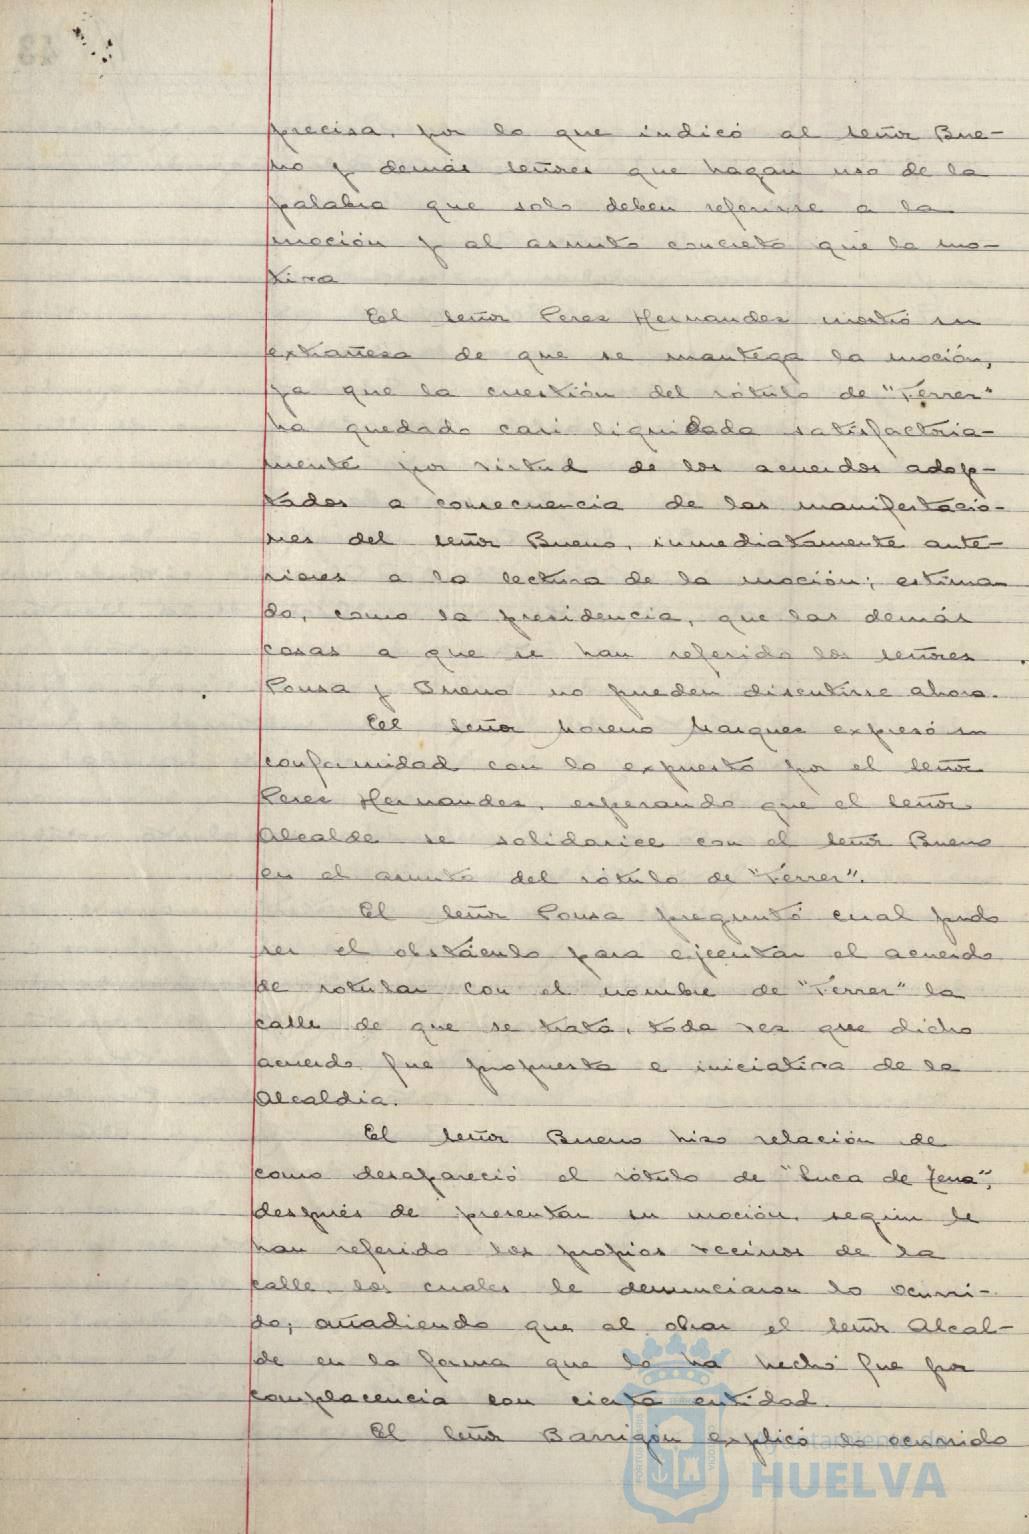 precisa, por lo que indicó al señor Bue-
no y demás señores que hagan uso de la
palabra que solo deben referirse a la
moción y al asunto concreto que la mo-
tiva
El señor Perez Hernandez mostró su
extrañeza de que se mantega la moción,
ya que la cuestión del rótulo de "Ferrer"
ha quedado casi liquidada satisfactoria-
mente por virtud de los acuerdos adop-
tados a consecuencia de las manifestacio-
nes del señor Bueno, inmediatamente ante-
riores a la lectura de la moción; estiman
do, como la presidencia, que las demás
cosas a que se han referido los señores
Ponsa y Bueno no pueden discutirse ahora.
El señor Moreno Marquez expresó su
conformidad con lo expuesto por el señor
Perez Hernandez, esperando que el señor
Alcalde se solidarice con el señor Bueno
en el asunto del rótulo de "Ferrer".
El señor Ponsa preguntó cual pudo
ser el obstáculo para ejecutar el acuerdo
de rotular con el nombre de "Ferrer" la
calle de que se trata, toda vez que dicho
acuerdo fue propuesta e iniciativa de la
Alcaldia.
El señor Bueno hizo relación de
como desapareció el rótulo de "Luca de Tena",
después de presentar su moción, según le
han referido los propios vecinos de la
calle, los cuales le denunciaron lo ocurri-
do; añadiendo que al obrar el señor Alcal-
de en la forma que lo ha hecho fue por
complacencia con cierta entidad.
El señor Barrigón explicó lo ocurrido
Ayuntamiento de
HUELVA